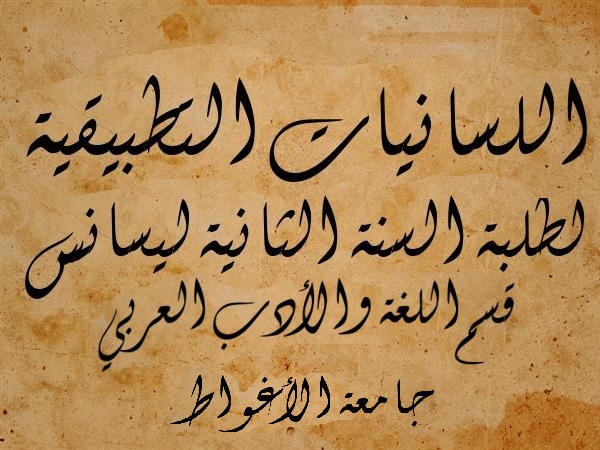 اللسانيات التطبيقية
لطلبة السنة الثانية ليسانس
قسم اللغة والأدب العربي
جامعة الأغواط